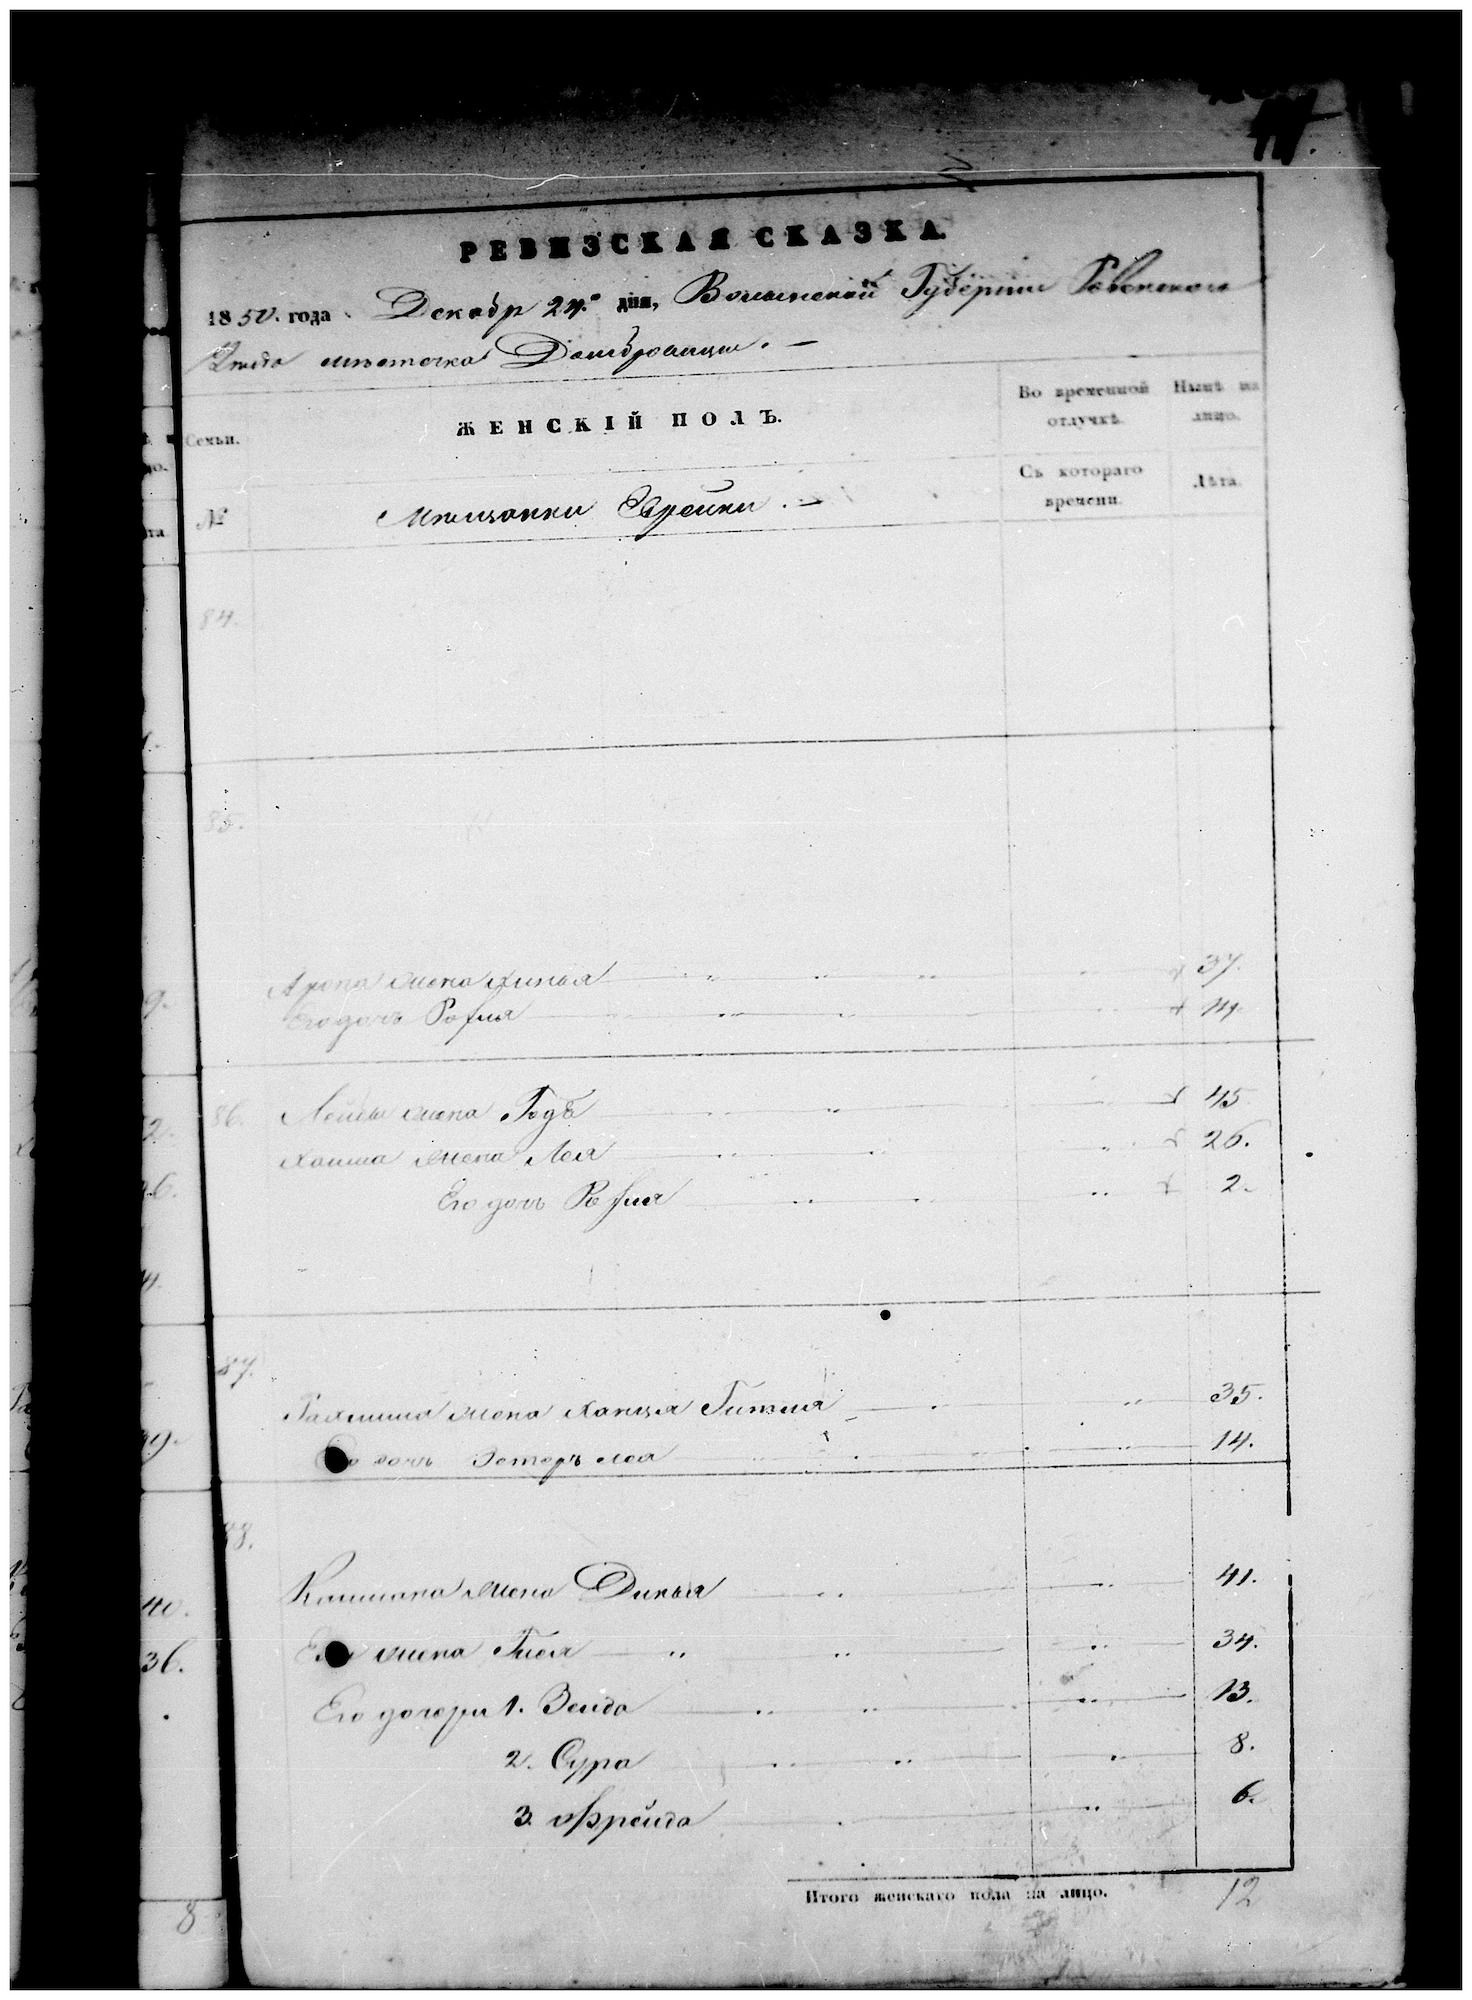 РЕВИЗСКАЯ СКАЗКА.
1850. года Декабр 24.º дня, Волынской Губернии Ровенского
Уезда местечка Домбровицы. —
Семьи.
ЖЕНСКІЙ ПОЛЪ.
Во временной отлучкѣ.
Нынѣ на лицо.
№
Мещанки Еврейки. —
Съ котораго времени.
Лѣта.
84.
85.
Арона жена Хинья 37.
Его дочь Рохля
86. Лейбы жена Годя 45.
Хаима жена Лея 26.
Его дочь Рохля 2.
87.
Рахмиля жена Ханця Гитля 35.
Его дочь Эстеръ Лея 14.
88.
жена Динья 41.
жена Гиля 34.
Его дочери 1. Зелда 13.
2. Сура 8.
3. Фрейда 6.
Итого женскаго пола на лицо. 12
8